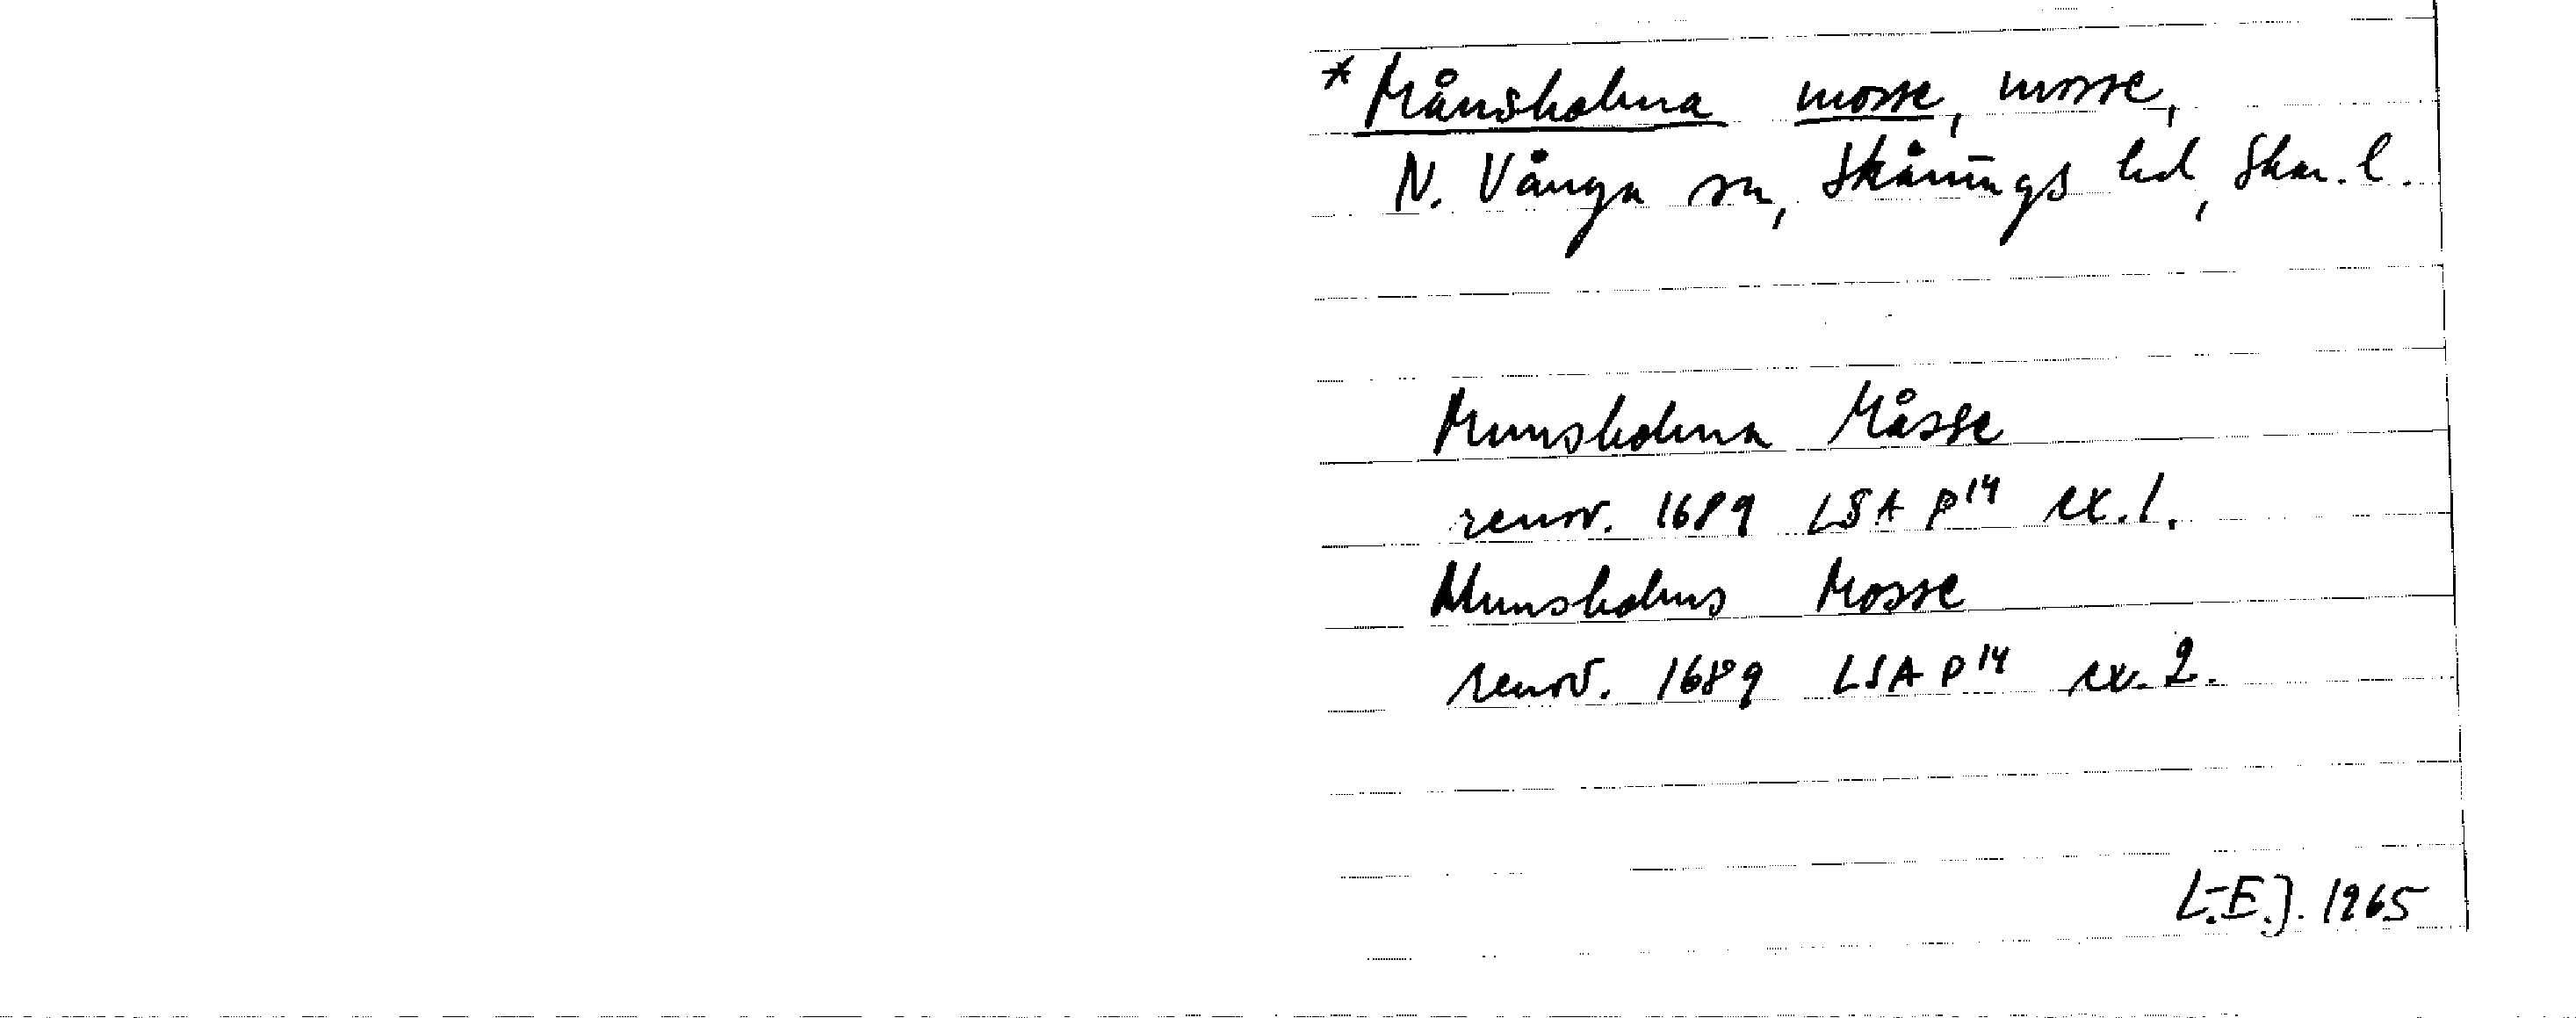 * Månsholma mosse, mosse,
N. Vånga sn, Skånings hd, Skar. l.
Munsholma Måsse
renov. 1689 LSA P14 ex. 1.
Munsholms Mosse
renov. 1689 LSA P14 ex. 2.
L.-E. J. 1965